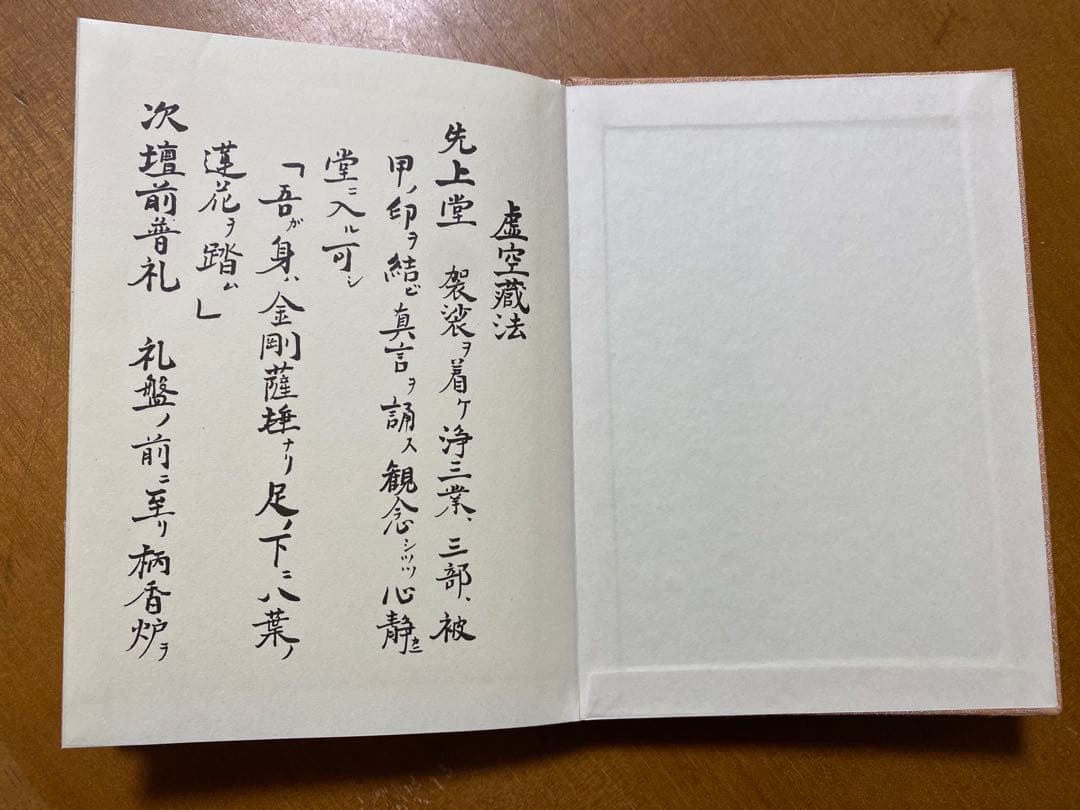 虚空蔵法
先上堂 袈裟ヲ着ケ浄三業、三部、被
甲ノ印ヲ結ビ真言ヲ誦ス観念シツツ心静カニ
堂ニ入ル可シ
「吾ガ身ハ金剛薩埵ナリ足ノ下ニ八葉ノ
蓮花ヲ踏ム」
次壇前普礼 礼盤ノ前ニ至リ柄香炉ヲ